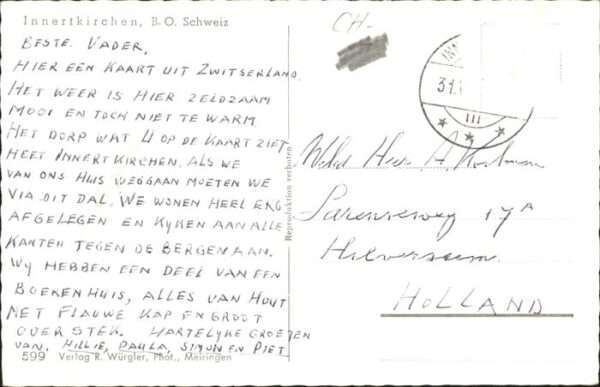 Innertkirchen, B.O. Schweiz
BESTE VADER,
HIER EEN KAART UIT ZWITSERLAND.
HET WEER IS HIER ZELDZAAM
MOOI EN TOCH NIET TE WARM
HET DORP WAT U OP DE KAART ZIET
HEET INNERTKIRCHEN. ALS WE
VAN ONS HUIS WEGGAAN MOETEN WE
VIA DIT DAL. WE WONEN HEEL ERG
AFGELEGEN EN KYKEN AAN ALLE
KANTEN TEGEN DE BERGEN AAN.
WY HEBBEN EEN DEEL VAN EEN
BOERENHUIS, ALLES VAN HOUT
MET FLAUWE KAP EN GROOT
OVERSTEK. HARTELYKE GROETEN
VAN, HILLIE, PAULA, SIMON EN PIET
599 Verlag R. Würgler, Phot., Meiringen
Reproduktion verboten
CH-
INN
31.
III
Heer A.
17A
Hilversum
HOLLAND